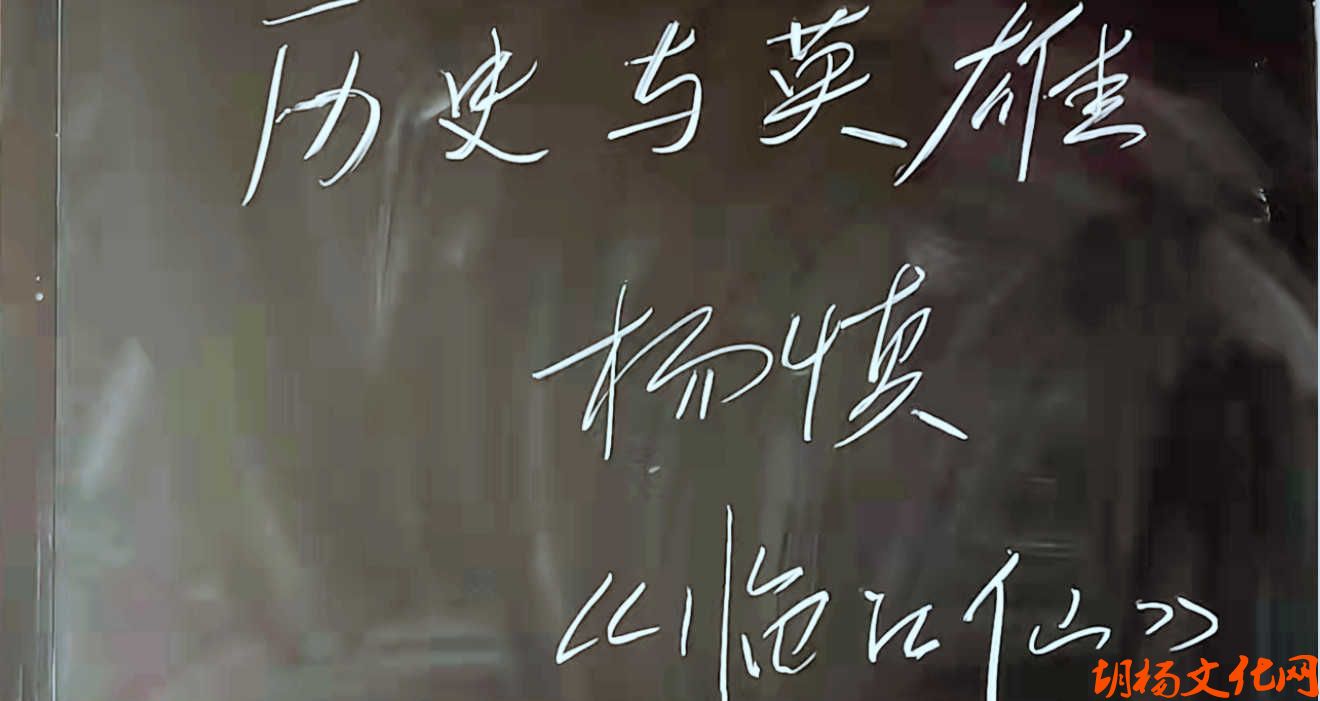 历史与英雄
杨慎
《临江仙》
胡杨文化网